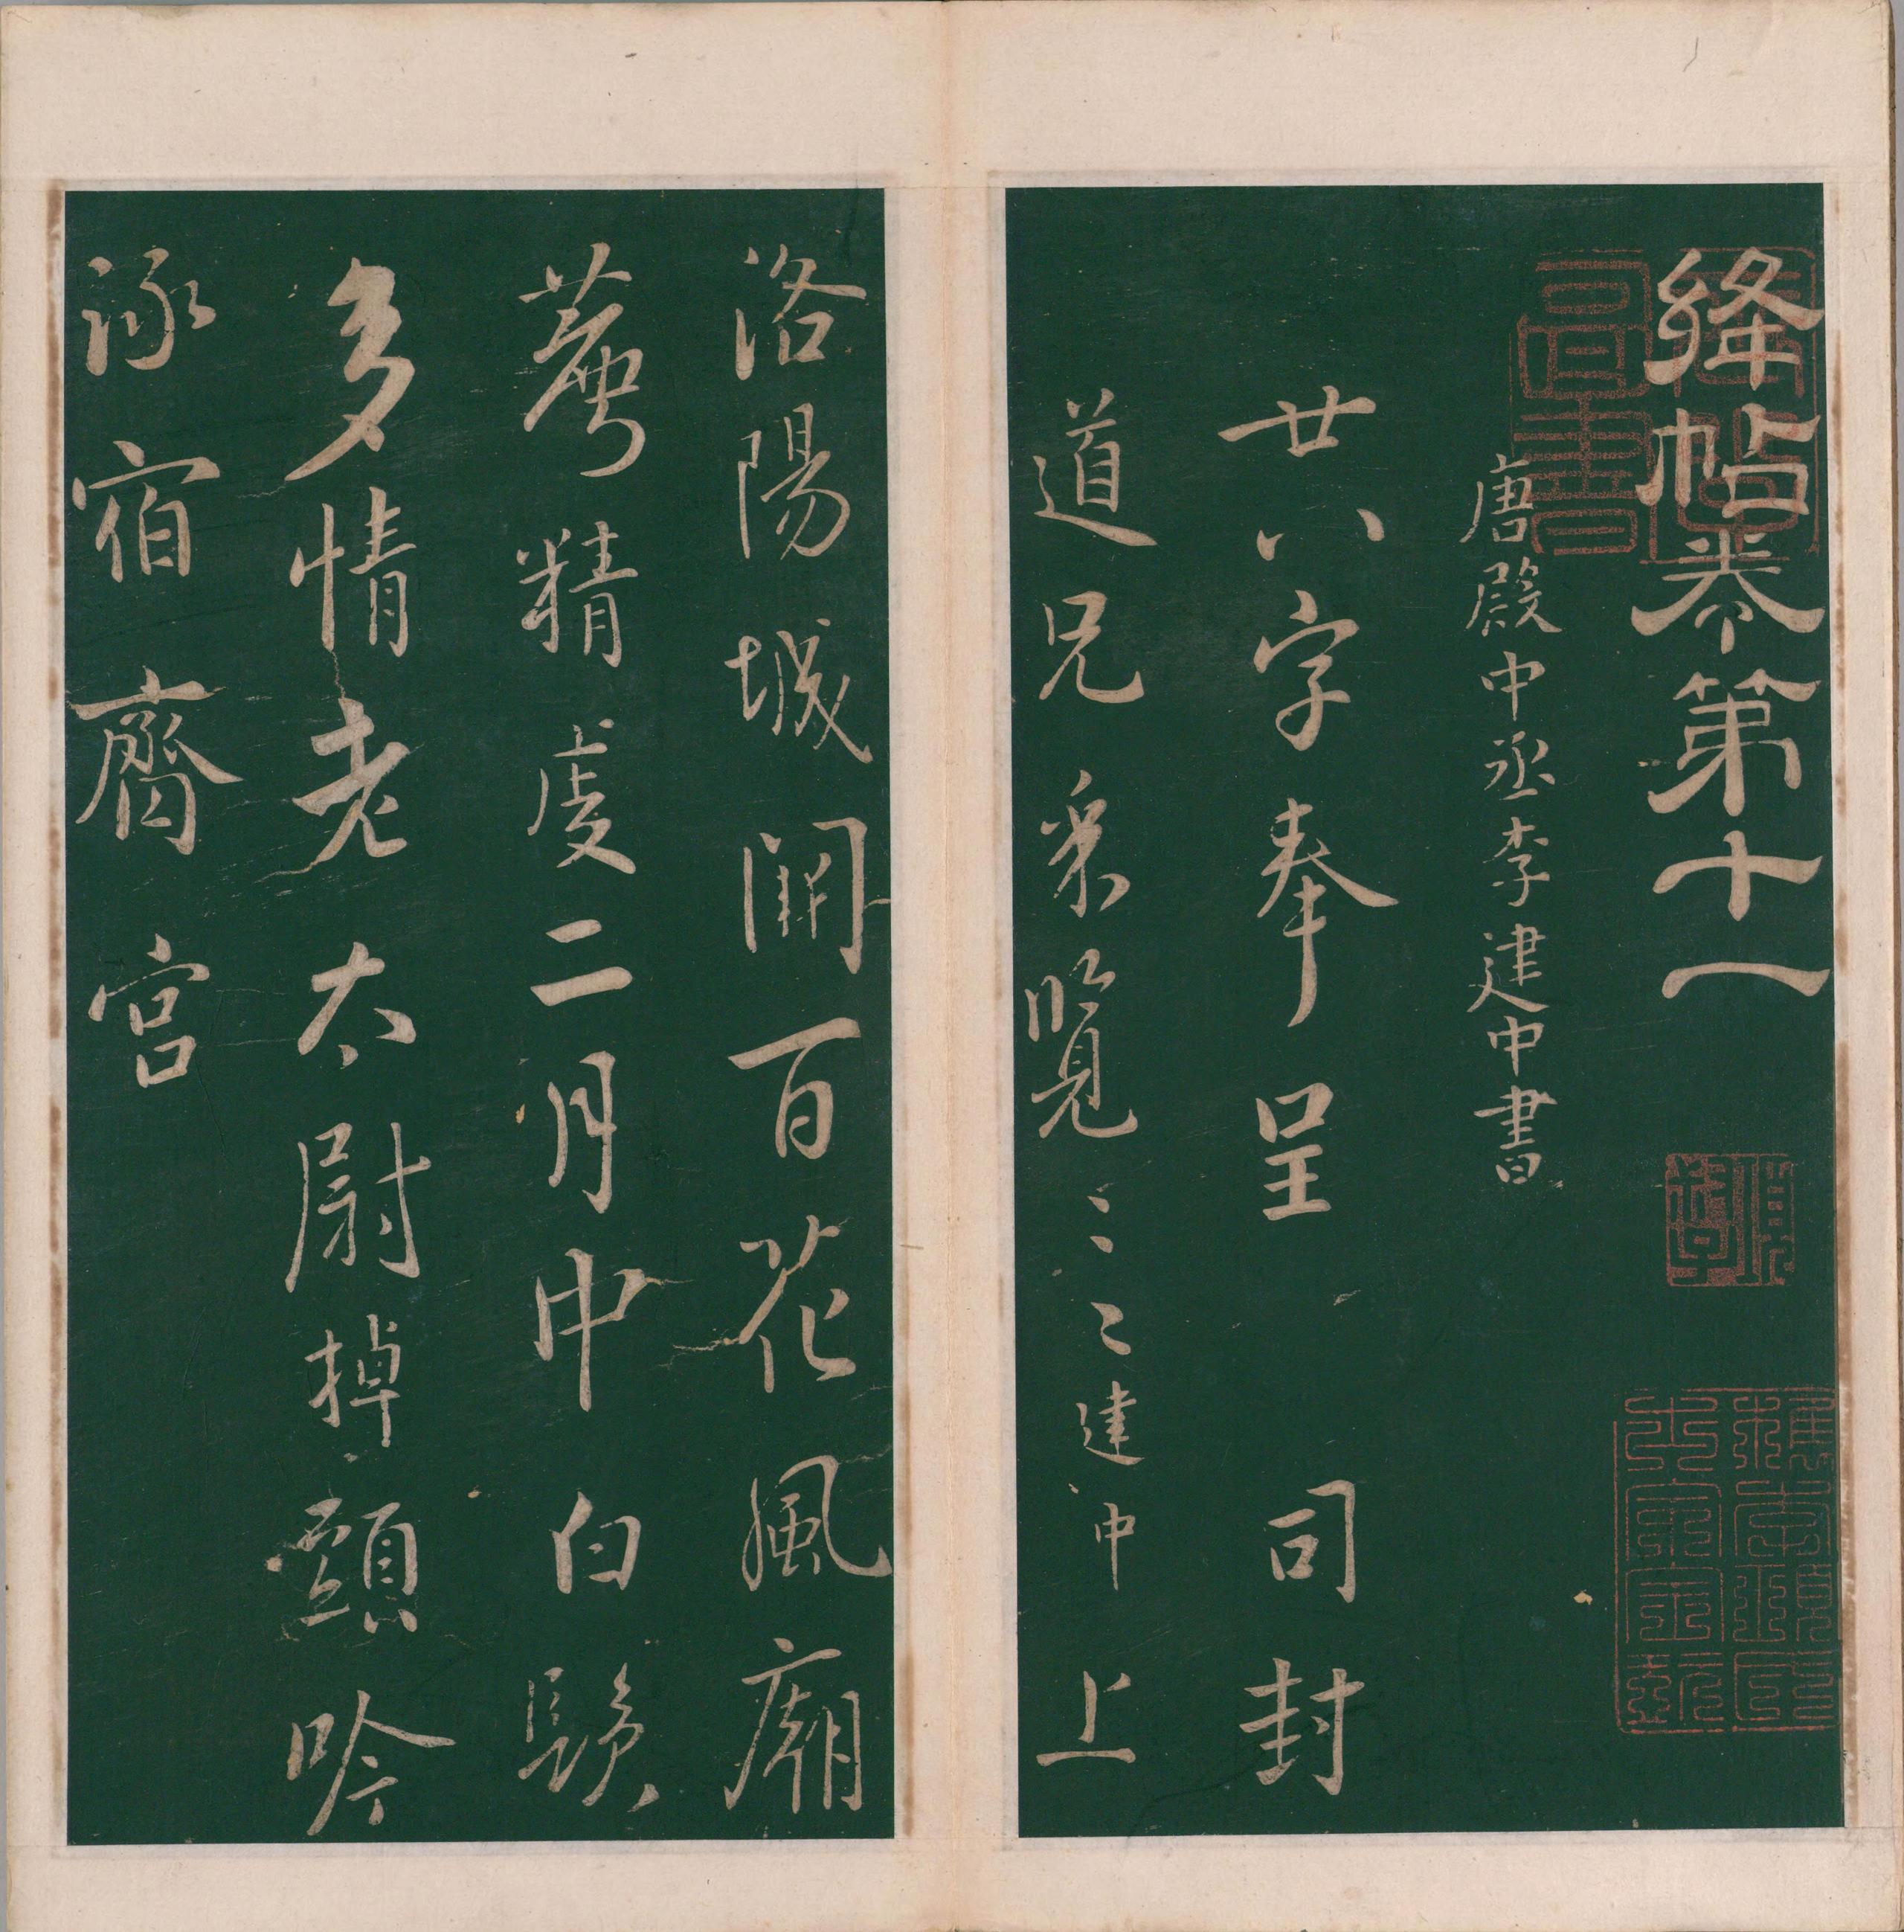 絳帖卷第十一
唐殿中丞李建中書
廿八字奉呈 司封
道兄采覽〻〻建中上
洛陽城開百花風廟
薦精虔二月中白髮
多情老太尉掉頭吟
詠宿齋宮